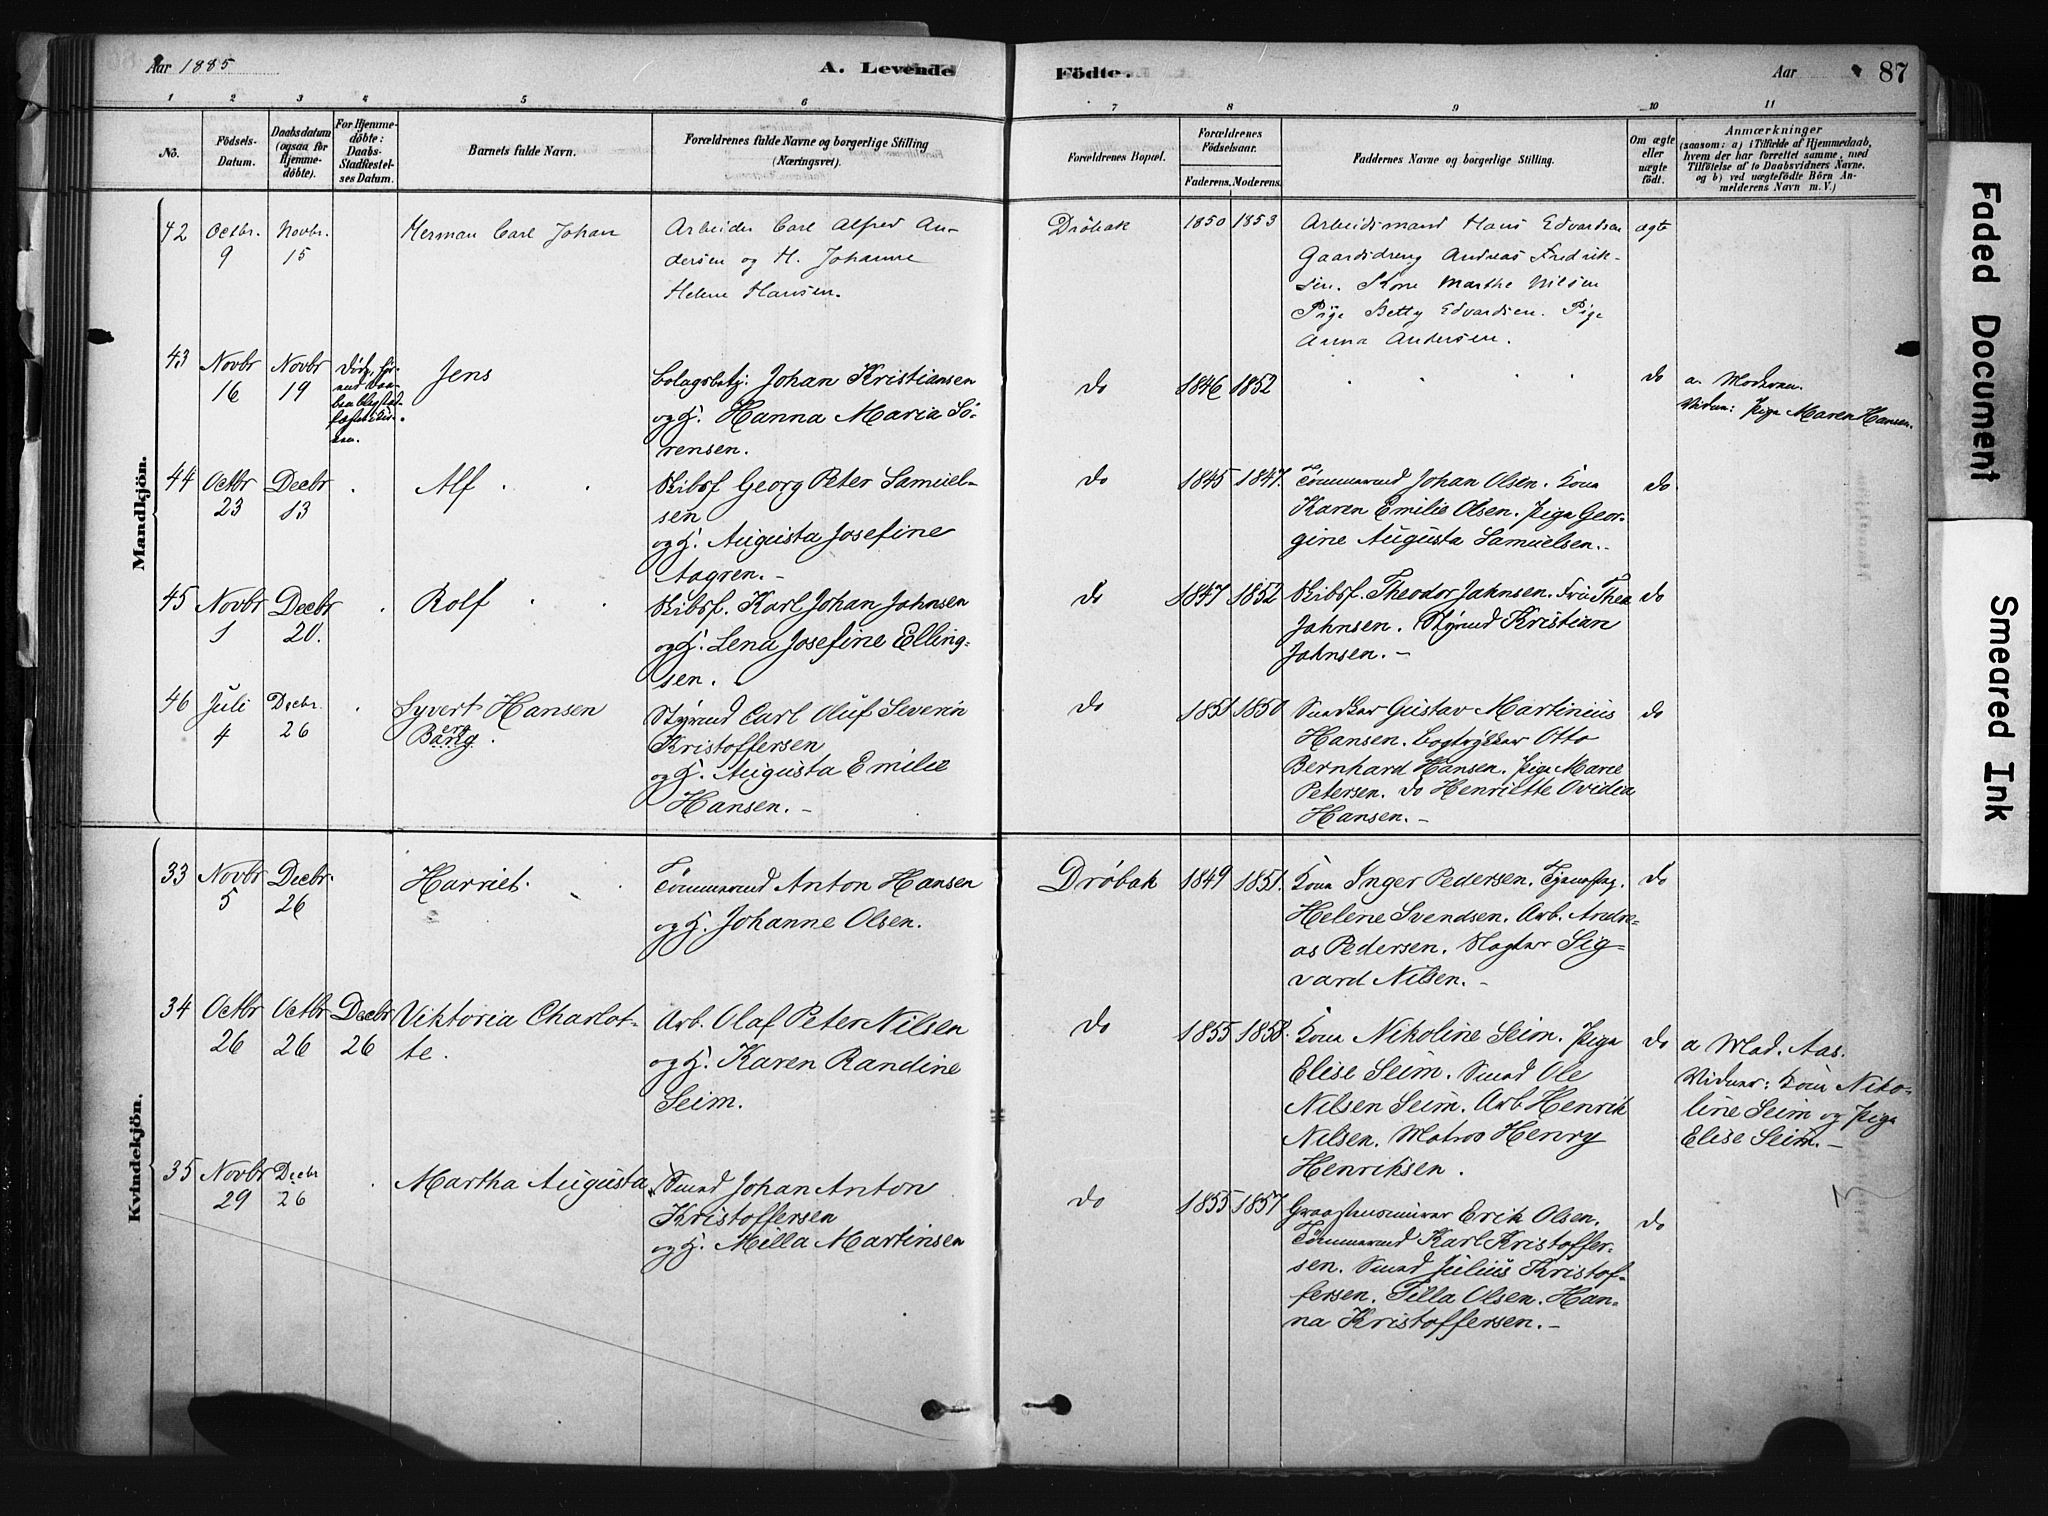 Aar 1885
A. Levende
Födte.
Aar
87
1 2 3 4 5 6 7 8 9 10 11
No.
Födsels-
Datum.
Daabsdatum
(ogsaa for
Hjemme-
döbte).
For Hjemme-
döbte:
Daabs-
Stadfæstel-
ses Datum.
Barnets fulde Navn.
Forældrenes fulde Navne og borgerlige Stilling
(Næringsvei).
Forældrenes Bopæl.
Forældrenes
Födselsaar.
Faderens. Moderens.
Faddernes Navne og borgerlige Stilling.
Om ægte
eller
uægte
födt.
Anmærkninger
(saasom: a) i Tilfælde af Hjemmedaab,
hvem der har forrettet samme, med
Tilföielse af to Daabsvidners Navne.
og b) ved uægtefödte Börn An-
melderens Navn m. V.)
Mandkjön.
42
Octbr.
9
Novbr.
15
Herman Carl Johan
Arbeider Carl Alfred An-
dersen og H. Johanne
Helene Hansen.
Dröbak
1850 1853
Arbeidsmand Hans Edvardsen
Gaardsdreng Andreas Fredrik-
sen. Kone Marthe Nilsen
Pige Betty Edvardsen. Pige
Anna Andersen.
ægte
43
Novbr
16
Novbr
19
Jens
Johan Kristiansen
og H. Hanna Maria Sö-
rensen.
Do
1846 1852
do
a. Moderen.
Vidne: Pige Maren Hansen.
44
Octbr
23
Decbr
13
Alf
Skibsf. Georg Peter Samuel-
sen
og H. Augusta Josefine
Aagren. -
Do
1845 1847.
Tömmermd Johan Olsen. Kone
Karen Emilie Olsen. Pige Geor-
gine Augusta Samuelsen. -
do
45
Novbr
1
Decbr
20.
Rolf
Skibsf. Karl Johan Jahnsen
og H. Lena Josefine Elling-
sen.
Do
1847 1852
Skibsf. Theodor Jahnsen. Fru Thea
Jahnsen. Styrmd Kristian
Jahnsen. -
do
46
Juli
4
Decbr.
26
Syvert Hansen
Berg.
Styrmd Carl Oluf Severin
Kristoffersen
og H. Augusta Emilie
Hansen. -
Do
1851 1850
Snedker Gustav Martinius
Hansen. Bogtrykker Otto
Bernhard Hansen. Pige Marie
Petersen. do Henriette Ovidia
Hansen. -
do
Kvindekjön.
33
Novbr
5
Decbr.
26
Harriet.
Tömmermd Anton Hansen
og H. Johanne Olsen.
Dröbak
1849 1851.
Kone Inger Pedersen.
Helene Svendsen. Arb. Andre-
as Pedersen. Slagter Sig-
vard Nilsen. -
do
34
Octbr
26
Octbr
26
Decbr
26
Viktoria Charlot-
te.
Arb. Olaf Peter Nilsen
og H. Karen Randine
Seim.
Do
1855 1858.
Kone Nikoline Seim. Pige
Elise Seim. Smed Ole
Nilsen Seim. Arb Henrik
Nilsen. Matros Henry
Henriksen.
do
a Mad. Aas.
Vidner: Kone Niko-
line Seim og Pige
Elise Seim. -
35
Novbr
29
Decbr
26
Martha Augusta
Smed Johan Anton
Kristoffersen
og H. Milla Martinsen
Do
1855 1857
Erik Olsen.
Tömmermd Karl Kristoffer-
sen. Smed Julius Kristof-
fersen. Tilla Olsen. Han-
na Kristoffersen. -
do
Faded Document
Smeared Ink